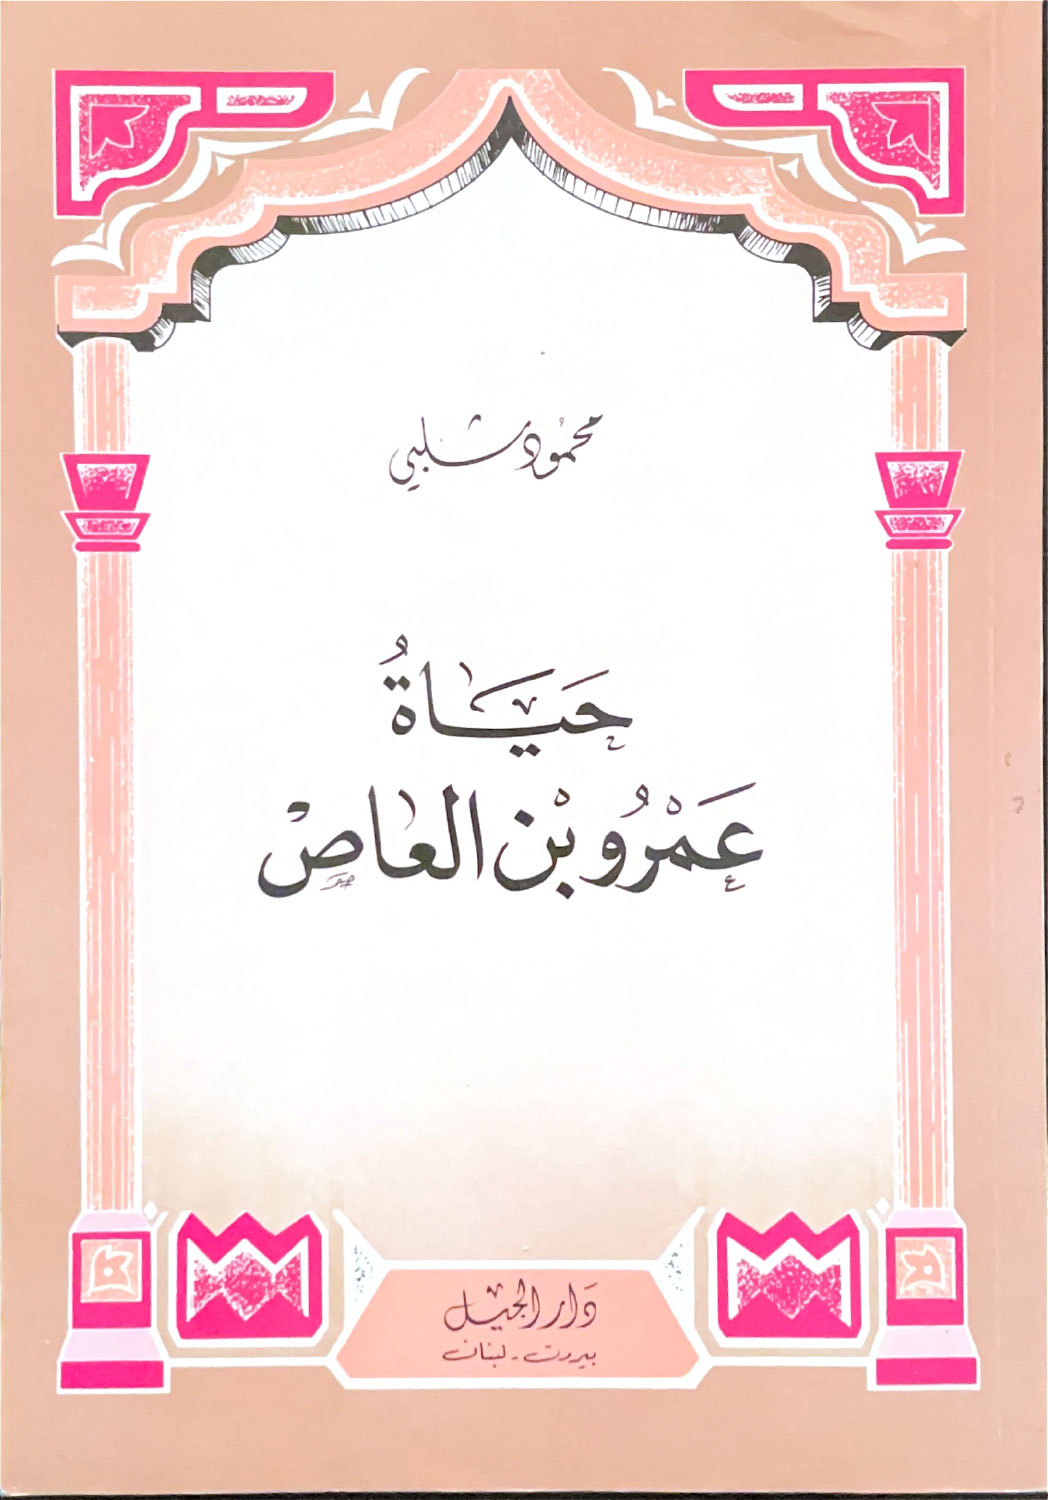 محمود شلبي
حَيَاةُ
عَمْرُو بْن العَاصْ
دَار الجيل
بيروت - لبنان